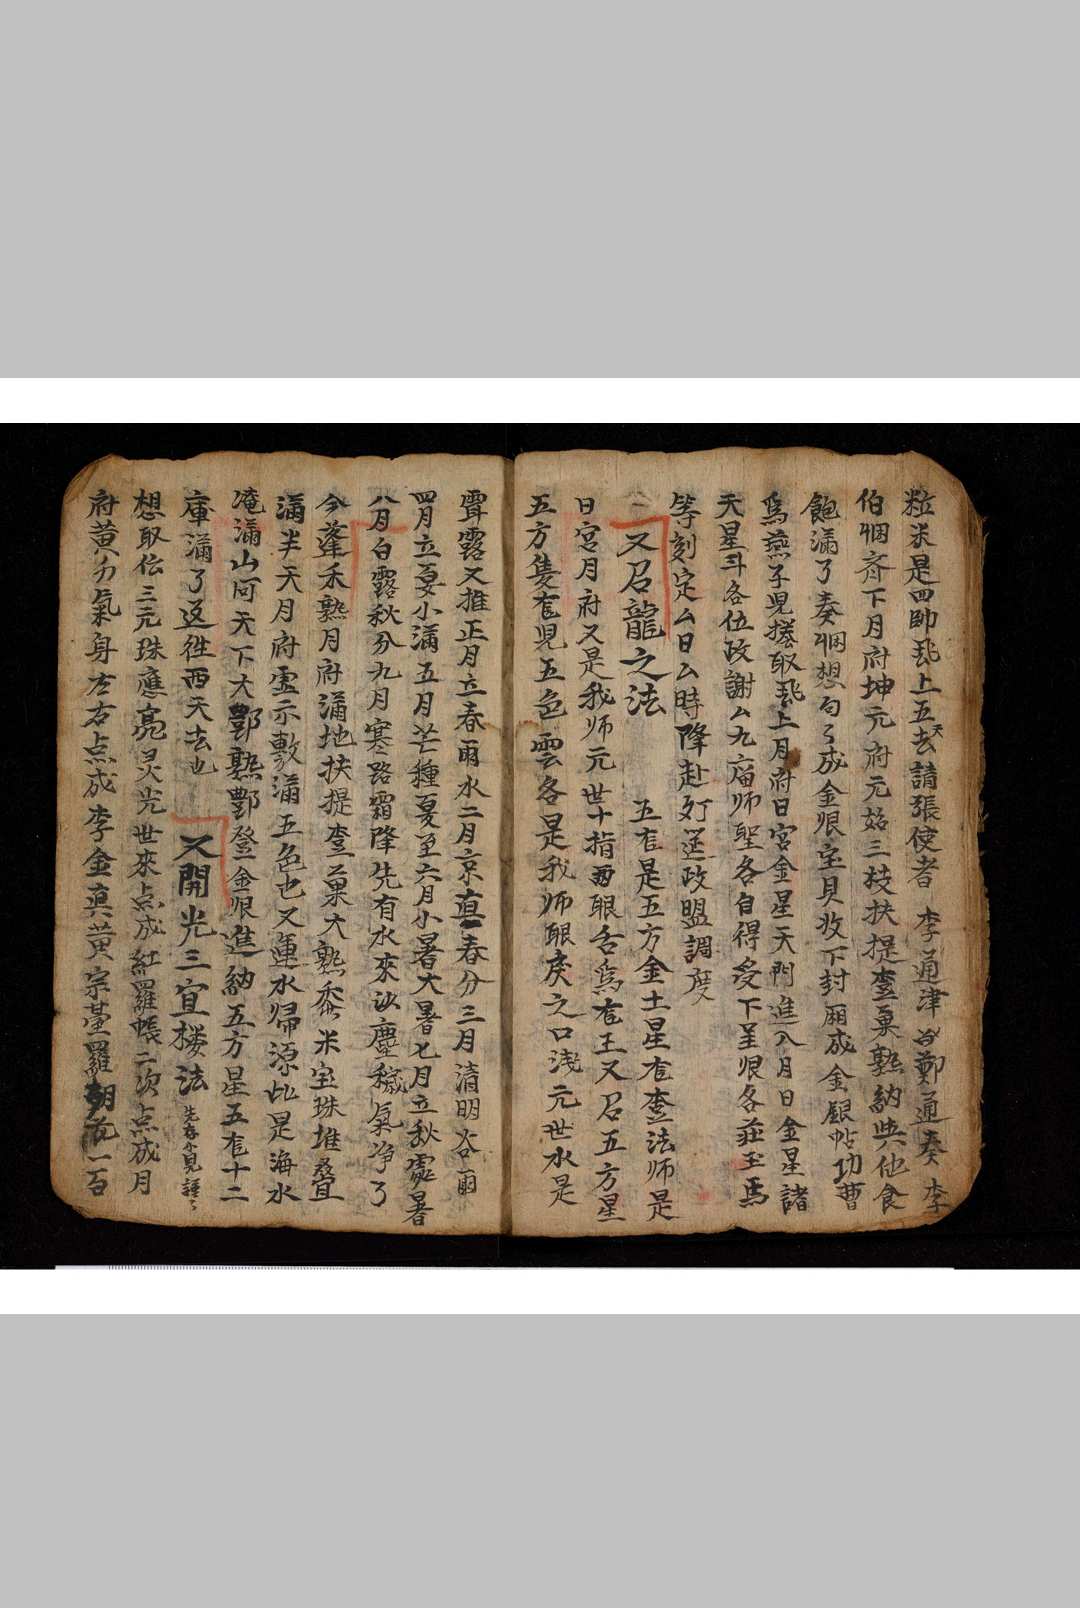 粒米是四帥飛上五天去請張使者 李通津 鄭通奏 李
伯惆齊下月府坤元府元始三枝扶提查菓熟納與他食
飽滿了奏惆想句々成金銀宝貝收下封廂成金銀帖功曹
爲燕子児搽取飛上月府日宮金星天門進入月日金星諸
天星斗各位政謝厶九庙师聖各自得受下筀銀各莊玉馬
等刻定厶日厶時降赴灯筵政盟調度
又召龍之法 五是五方金土星查法师是
日宮月府又是我师元世十指眼舌爲王又召五方星
五方隻児五色雲各是我师眼戾之口浅元世水是
霄露又推正月立春雨水二月京直春分三月清明谷雨
四月立夏小滿五月芒種夏至六月小暑大暑七月立秋處暑
八月白露秋分九月寒路霜降先有水來汰塵穢氣净了
今逢禾熟月府滿地扶提查菓大熟黍米宝珠堆叠
滿半天月府虚示敷滿五色也又運水帰源比是海水
淹滿山河天下大酆熟酆登金銀進納五方星五十二
庫滿了返徃西天去也 又開光三宜楼法 先存見語々
想取伝三元珠應亮灵光世來点成紅羅帳二次点成月
府黄分氣身左右点成李金真黄宗臺羅朝花一百